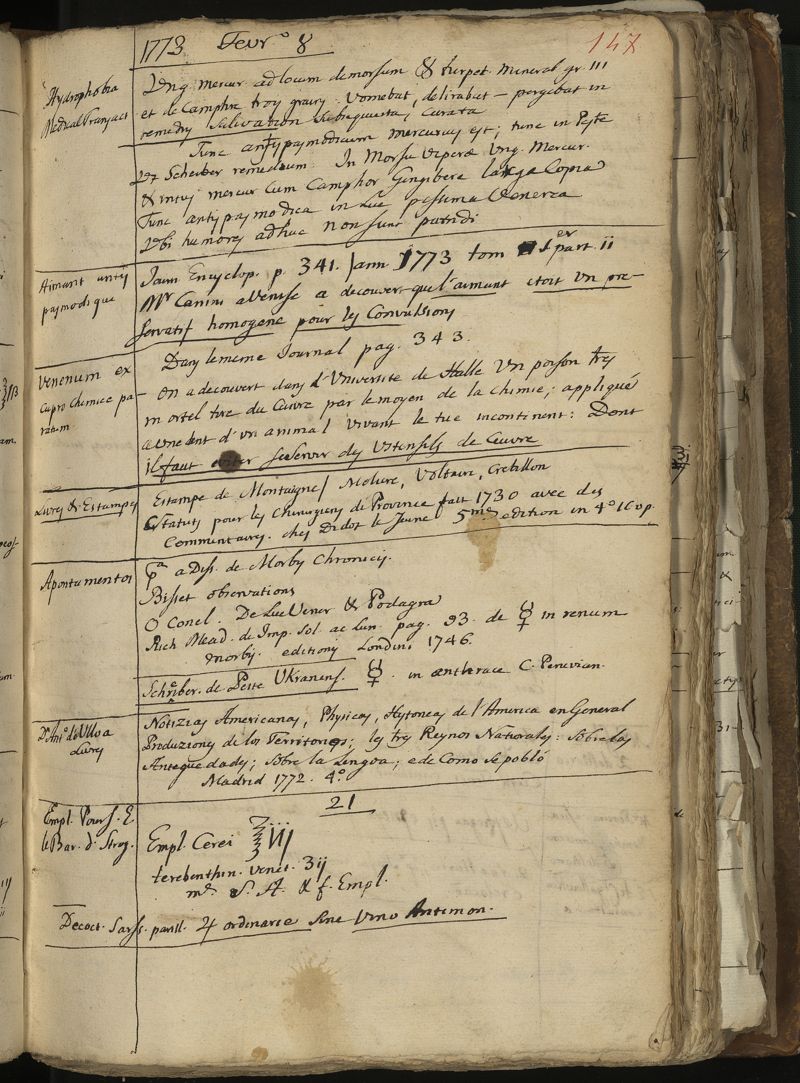 1773 Fevr.º 8
147
Hydrophobia
Medical Transact
Ung. mercur. ad locum demorsum & turpet. mineral gr. III
et de Camphre troy grains. vomebat, delirabat – pergebat in
remedy Salivation subsequuta, Curata
Tunc antispasmodicum mercurius est; tunc in Peste
Schreiber remedium. In Morsu Viperæ Ung. Mercur.
& intus mercur cum Camphor Gingibere larga Copia
Tunc antispasmodica in Lue pessima Venerea
Ubi humores adhuc non sunt putridi
Aimant anti
pasmodique
Journ Encyclop. p. 341. Jann 1773 tom 1er part. ii
Mr Canini a Venise a decouvert que l'aimant etoit un pre-
servatif homogene pour les Convulsions
Venenum ex
Cupro chemice pa-
ratum
Dans le meme Journal pag. 343.
On a decouvert dans l'Université de Halle Un poison tres
mortel tire du Cuivre par le moyen de la Chimie; appliqué
a une dent d'un animal vivant le tue incontinent: Dont
il faut eviter se servir des Ustensils de Cuivre
Livres & Estampes
Estampe de Montaigne / Moliere, Voltaire, Crebillon
Statuts pour les Chirurgiens de Province fait 1730 avec des
Commentaires. chez Didot le Jeune 5me edition in 4º 16 op.
Apontamentos
pª a Diss. de Morbis Chronicis.
Bisset observations
O Conel. De Lue Vener & Podagra
Rich Mead. de Imp. Sol ac Lun. pag. 93. de ☿ in renum
morbis. editionis Londini 1746.
Schreiber. de Peste Ukranens. ☿. in anthrace C. Peruvian.
Dn Antº de Ulloa
Livres
Notizias Americanas, Physicas, Hystoricas de l'America en General
Produziones de los Territorios; los tres Reynos Naturales: sobre las
Antiguedades; sobre la Lingoa; e de Como se pobló
Madrid 1772. 4º.
21
Empl. Pour S. E.
le Bar. d. Strog.
Empl. Cerei ℥vij
terebenthin. venet. ʒij
m. S. A. & f. Empl.
Decoct. Sarss. parill. ♃ ordinarie sine Vino Antimon.